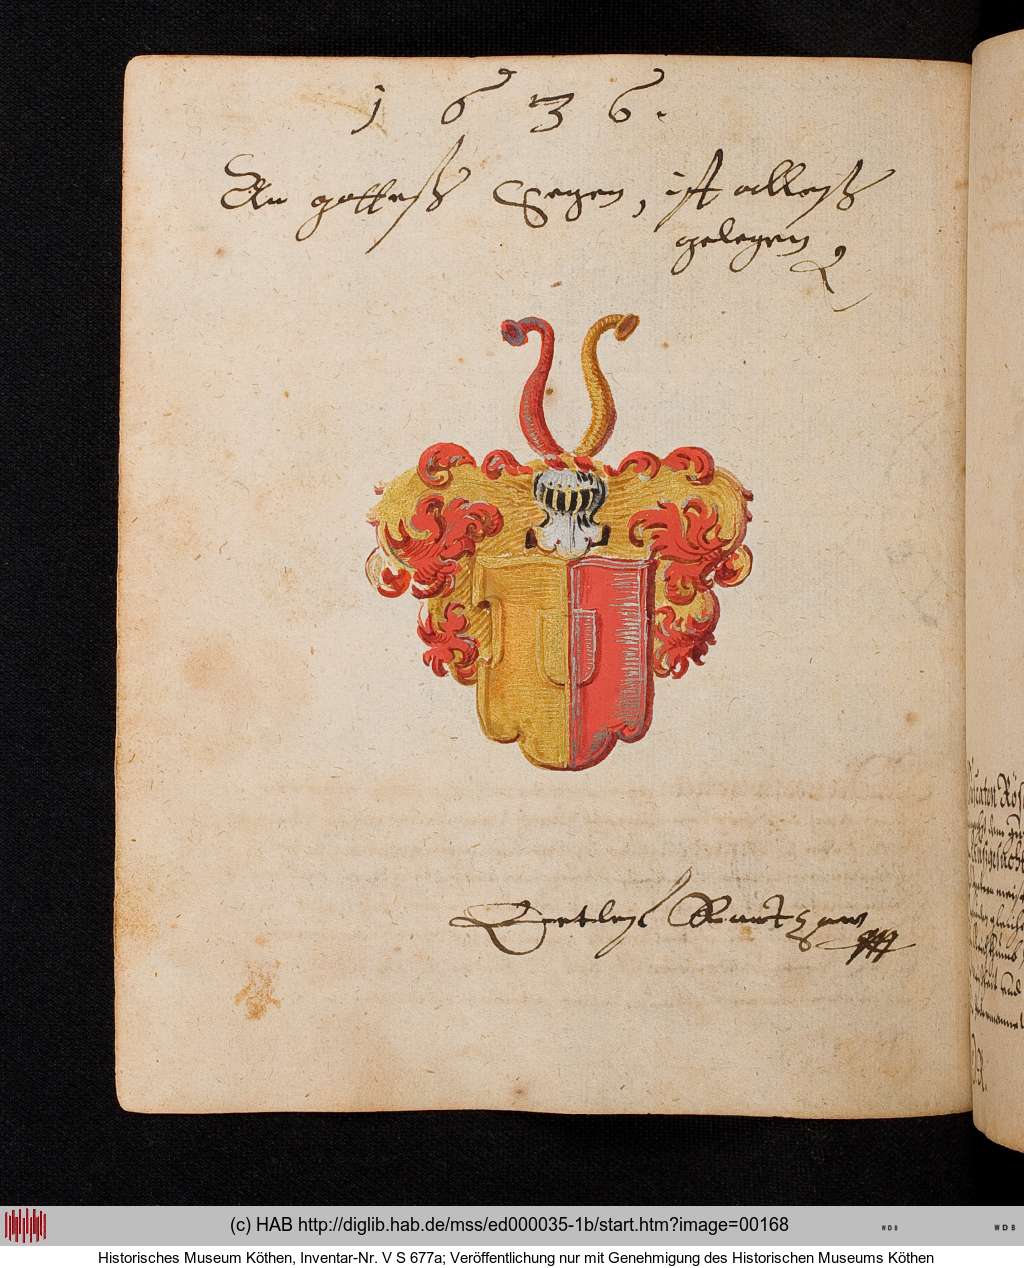 1636.
An gottes Segen, ist alles
gelegen
Detleff Rantzow
(c) HAB http://diglib.hab.de/mss/ed000035-1b/start.htm?image=00168
WDB
WDB
Historisches Museum Köthen, Inventar-Nr. V S 677a; Veröffentlichung nur mit Genehmigung des Historischen Museums Köthen